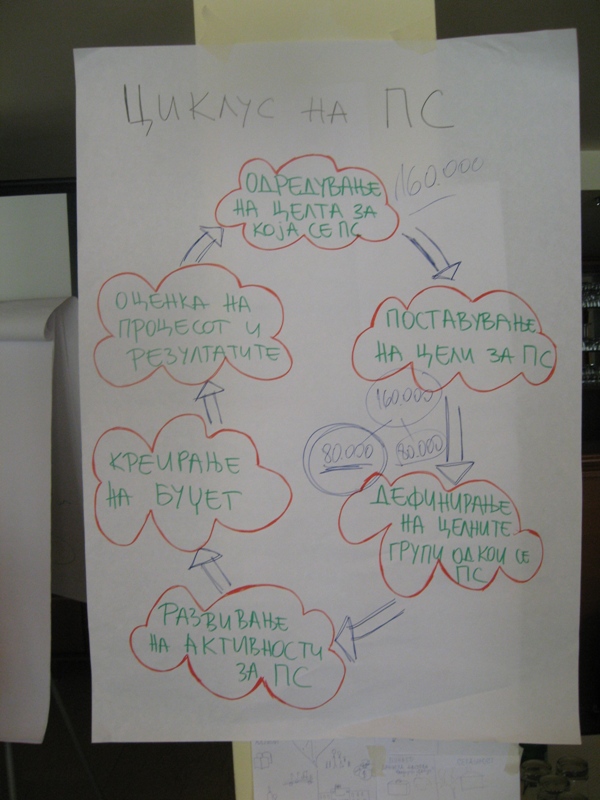 ЦИКЛУС НА ПС
ОДРЕДУВАЊЕ
НА ЦЕЛТА ЗА
КОЈА СЕ ПС
160.000
ПОСТАВУВАЊЕ
НА ЦЕЛИ ЗА ПС
160.000
80.000
80.000
ДЕФИНИРАЊЕ
НА ЦЕЛНИТЕ
ГРУПИ ОД КОИ СЕ
ПС
РАЗВИВАЊЕ
НА АКТИВНОСТИ
ЗА ПС
КРЕИРАЊЕ
НА БУЏЕТ
ОЦЕНКА НА
ПРОЦЕСОТ И
РЕЗУЛТАТИТЕ